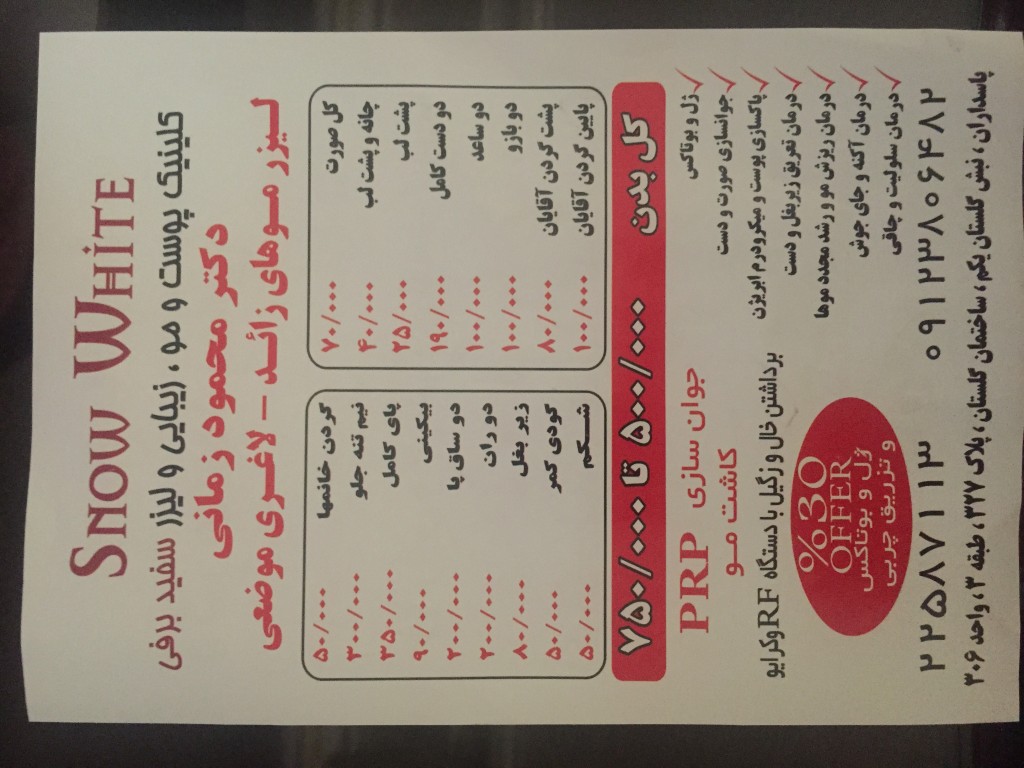 SNOW WHITE
کلینیک پوست و مو ، زیبایی و لیزر سفید برفی
دکتر محمود زمانی
لیزر موهای زائد - لاغری موضعی
کل صورت ۷۰/۰۰۰
چانه و پشت لب ۴۰/۰۰۰
پشت لب ۲۵/۰۰۰
دو دست کامل ۱۹۰/۰۰۰
دو ساعد ۱۰۰/۰۰۰
دو بازو ۱۰۰/۰۰۰
پشت گردن آقایان ۸۰/۰۰۰
پایین گردن آقایان ۱۰۰/۰۰۰
گردن خانمها ۵۰/۰۰۰
نیم تنه جلو ۳۰۰/۰۰۰
پای کامل ۳۵۰/۰۰۰
بیکینی ۹۰/۰۰۰
دو ساق پا ۲۰۰/۰۰۰
دو ران ۲۰۰/۰۰۰
زیر بغل ۸۰/۰۰۰
گودی کمر ۵۰/۰۰۰
شکم ۵۰/۰۰۰
کل بدن ۵۰۰/۰۰۰ تا ۷۵۰/۰۰۰
ژل و بوتاکس
جوانسازی صورت و دست
پاکسازی پوست و میکرودرم ابریژن
درمان تعریق زیربغل و دست
درمان ریزش مو و رشد مجدد موها
درمان آکنه و جای جوش
درمان سلولیت و چاقی
جوان سازی PRP
کاشت مو
برداشتن خال و زگیل با دستگاه RF وکرایو
%30
OFFER
ژل و بوتاکس
و تزریق چربی
۰۹۱۲۳۸۰۶۴۸۲ ۲۲۵۸۷۱۱۳
پاسداران ، نبش گلستان یکم ، ساختمان گلستان ، پلاک ۳۲۷ ، طبقه ۳ ، واحد ۳۰۶